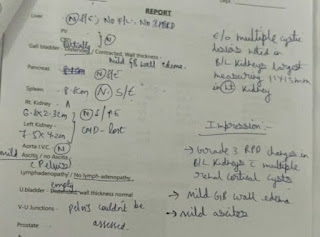 REPORT
Liver N S/E; No F/L; No IHBRD
PV
CBD N
Gall bladder Partially Distended / Contracted, Wall thickness -
Mild GB Wall edema.
Pancreas N S/E
Spleen - 8.8cm N S/E
Rt. Kidney - A
6.1x2.3cm N S/↑E
Left Kidney -
7.5x4.2cm CMD - lost
Aorta I.V.C. N
mild Ascitis / no Ascitis
Pelvis
Lymphadenopathy / No lymph-adenopathy
empty
U.bladder wall thickness normal
V-U Junctions - pelvis couldn't be
Prostate assessed.
e/o multiple cystic
lesions noted in
B/L Kidneys largest
measuring
in Lt Kidney
Impression:-
→ Grade 3 RPD changes in
B/L Kidneys c multiple
renal cortical cysts
→ Mild GB wall edema
→ mild ascites